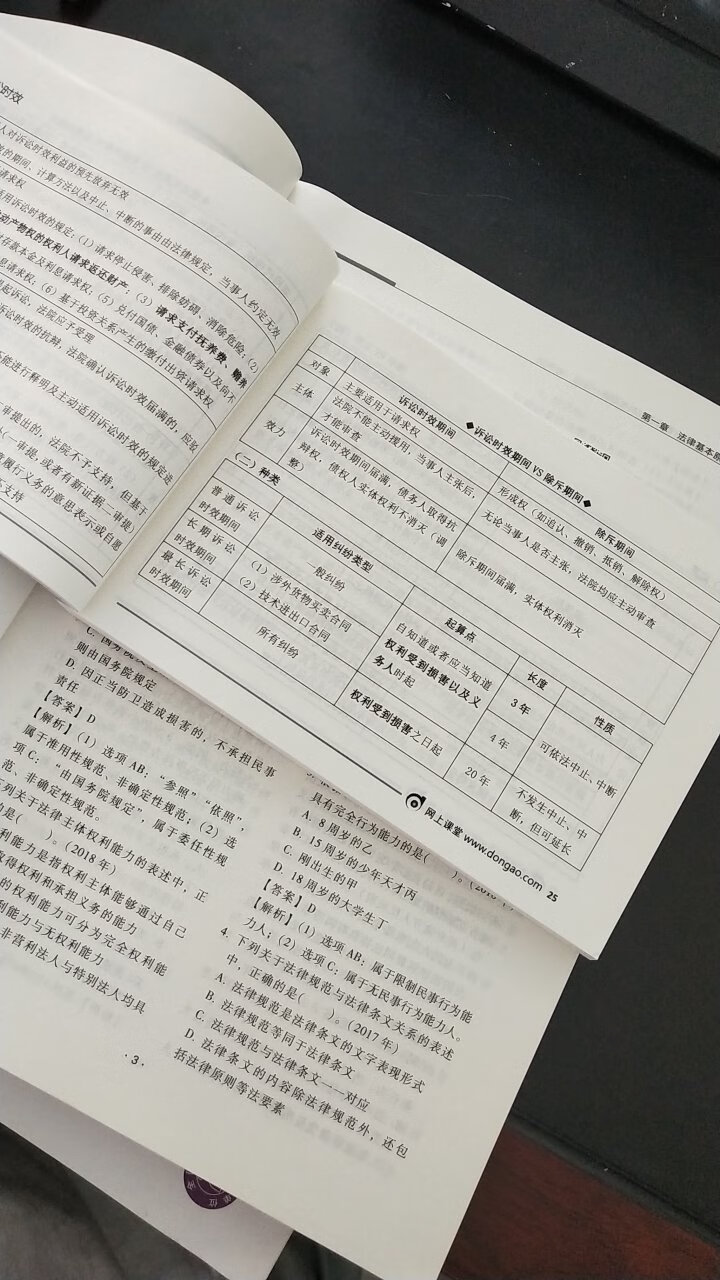 讼时效
人对诉讼时效利益的预先放弃无效
效的期间、计算方法以及中止、中断的事由由法律规定，当事人约定无效
请求权
适用诉讼时效的规定：(1) 请求停止侵害、排除妨碍、消除危险；(2)
动产物权的权利人请求返还财产；(3) 请求支付抚养费、赡养
付存款本金及利息请求权；(5) 兑付国债、金融债券以及向不
息请求权；(6) 基于投资关系产生的缴付出资请求权
起诉讼，法院应予受理
诉讼时效的抗辩，法院确认诉讼时效届满的，应驳
不能进行释明及主动适用诉讼时效的规定进
审提出的，法院不予支持，但基于
(一审提，或者有新证据二审提)
履行义务的意思表示或自愿
支持
第一章 法律基本原
◆诉讼时效期间 VS 除斥期间◆
诉讼时效期间
除斥期间
对象
主要适用于请求权
形成权（如追认、撤销、抵销、解除权）
主体
法院不能主动援用，当事人主张后，
才能审查
无论当事人是否主张，法院均应主动审查
效力
诉讼时效期间届满，债务人取得抗
辩权，债权人实体权利不消灭（调
整）
除斥期间届满，实体权利消灭
(二) 种类
适用纠纷类型
起算点
长度
性质
普通诉讼
时效期间
一般纠纷
自知道或者应当知道
权利受到损害以及义
务人时起
3 年
可依法中止、中断
长期诉讼
时效期间
(1) 涉外货物买卖合同
(2) 技术进出口合同
4 年
最长诉讼
时效期间
所有纠纷
权利受到损害之日起
20 年
不发生中止、中
断，但可延长
网上课堂 www.dongao.com
25
则由国务院规定
D. 因正当防卫造成损害的，不承担民事
责任
【答案】D
【解析】(1) 选项 AB：“参照”“依照”，
属于准用性规范、非确定性规范；(2) 选
项 C：“由国务院规定”，属于委任性规
范、非确定性规范。
列关于法律主体权利能力的表述中，正
的是( )。(2018 年)
利能力是指权利主体能够通过自己
取得权利和承担义务的能力
的权利能力可分为完全权利能
利能力与无权利能力
非营利法人与特别法人均具
· 3 ·
具有完全行为能力的是( )。
A. 8 周岁的乙
B. 15 周岁的少年天才丙
C. 刚出生的甲
D. 18 周岁的大学生丁
【答案】D
【解析】(1) 选项 AB：属于限制民事行为能
力人；(2) 选项 C：属于无民事行为能力人。
4. 下列关于法律规范与法律条文关系的表述
中，正确的是( )。(2017 年)
A. 法律规范是法律条文的文字表现形式
B. 法律规范等同于法律条文
C. 法律规范与法律条文一一对应
D. 法律条文的内容除法律规范外，还包
括法律原则等法要素